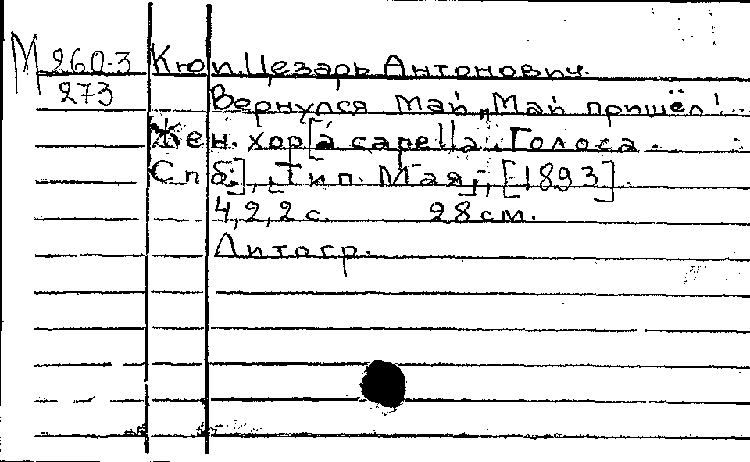 М 260-3 Кюи. Цезарь Антонович.
273 Вернулся май „Май пришёл!..
Жен. хор [a capella. Голоса.
Спб.], [Тип. Мая], [1893].
4, 2, 2 с. 28 см.
Литогр.